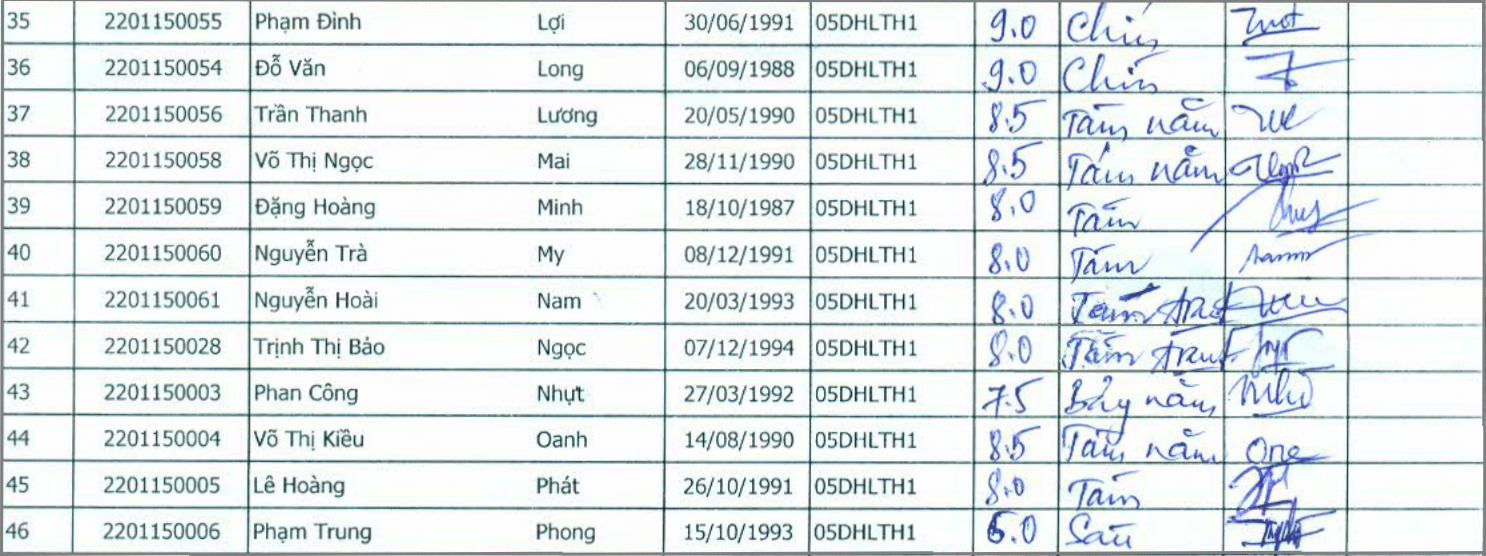 35 2201150055 Phạm Đình Lợi 30/06/1991 05DHLTH1 9.0 Chín
36 2201150054 Đỗ Văn Long 06/09/1988 05DHLTH1 9.0 Chín
37 2201150056 Trần Thanh Lương 20/05/1990 05DHLTH1 8.5 Tám năm
38 2201150058 Võ Thị Ngọc Mai 28/11/1990 05DHLTH1 8.5 Tám năm
39 2201150059 Đặng Hoàng Minh 18/10/1987 05DHLTH1 8.0 Tám
40 2201150060 Nguyễn Trà My 08/12/1991 05DHLTH1 8.0 Tám
41 2201150061 Nguyễn Hoài Nam 20/03/1993 05DHLTH1 8.0 Tám
42 2201150028 Trịnh Thị Bảo Ngọc 07/12/1994 05DHLTH1 8.0 Tám
43 2201150003 Phan Công Nhựt 27/03/1992 05DHLTH1 7.5 Bảy năm
44 2201150004 Võ Thị Kiều Oanh 14/08/1990 05DHLTH1 8.5 Tám năm
45 2201150005 Lê Hoàng Phát 26/10/1991 05DHLTH1 8.0 Tám
46 2201150006 Phạm Trung Phong 15/10/1993 05DHLTH1 6.0 Sáu